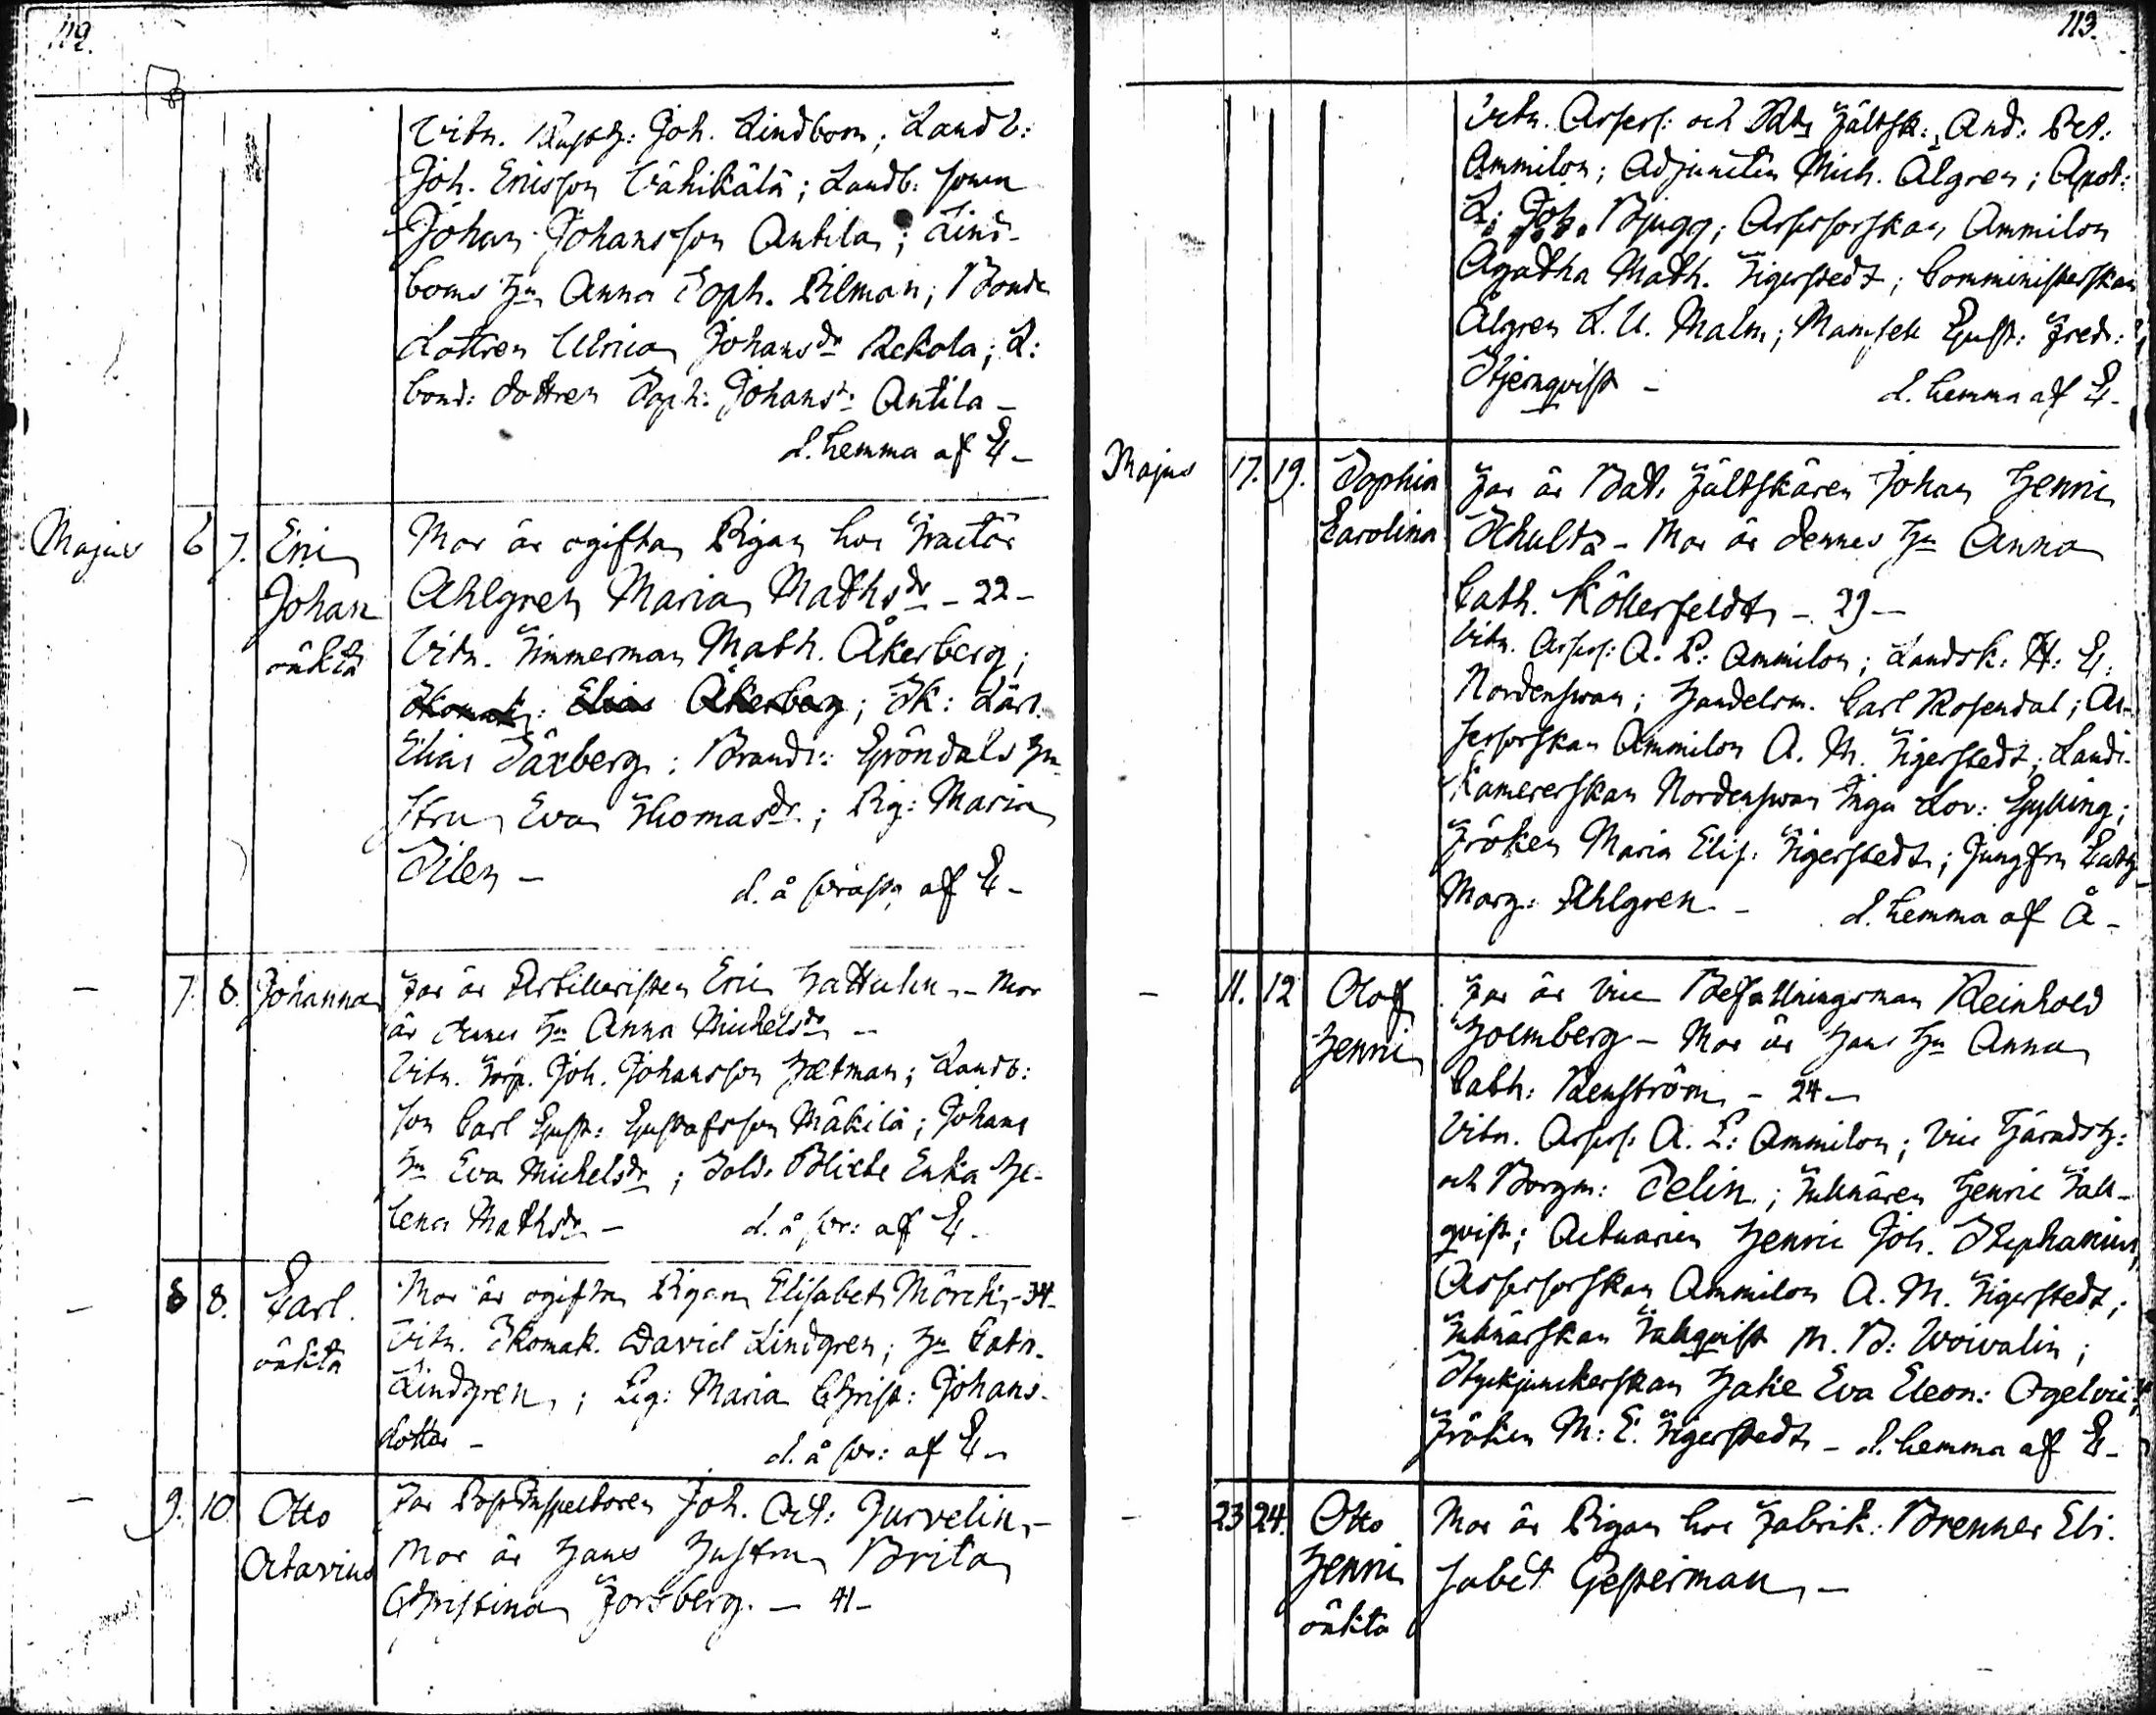 112.
Vitn. Joh. Lindbom; Landb:
Joh. Ericsson Vähikälä; Landb: sonen
Johan Johansson Antila; Lind-
boms Hu Anna Soph. Pilman; Bonde
dottren Ulrica Johansdr Rekola; L:
bond: dottren Soph: Johansdr: Antila –
d. hemma af E –
Majus 6 7. Eric Johan oäkta
Mor är ogifta Pigan hos Tractör
Ahlgren Maria Mathsdr – 22 –
Vitn. Timmerman Math. Åkerberg;
Skomak: Elias Åkerberg; Sk: Lärl.
Elias Säxberg; Brandv: Gröndals Hu-
stru Eva Thomasdr; Pig: Maria
Silen –
d. å präst. af E –
– 7. 8. Johanna
Far är Artilleristen Eric Hattulin – Mor
är dennes Hu Anna Michelsdr –
Vitn. Torp. Joh. Johansson Hætman; Landb:
son Carl Gust: Gustafsson Mäkilä; Johans
Hu Eva Michelsdr; Sold. Blicks Enka He-
lena Mathsdr –
d. å pr: af E.
– 8 8. Carl. oäkta
Mor är ogifta Pigan Elisabet Mörck – 34 –
Vitn. Skomak. David Lindgren; Hu Catr.
Lindgren; Pig: Maria Christ: Johans-
dotter –
d. å pr: af E –
– 9. 10. Otto Octavius
Far PostInspectoren Joh. Oct: Jurvelin –
Mor är Hans Hustru Brita
Christina Forsberg. – 41 –
113.
Vitn. Assess: och Bat. Fältsk: And: Pet:
Ammilon; Adjuncten Mich. Ålgren; Apot:
L: Joh. Bjugg; Assessorskan Ammilon
Agatha Math. Tigerstedt; Comministerskan
Ålgren L. U. Malm; Mamsell Gust: Fred:
Stjernqvist –
d. hemma af E –
Majus 17. 19. Sophia Carolina
Far är Bat. Fältskären Johan Henric
Schultz – Mor är dennes Hu Anna
Cath. Köllerfeldt – 29 –
Vitn. Assess: A. P: Ammilon; Landsk: H: E:
Nordenswan; Handelsm. Carl Rosendal; As-
sessorskan Ammilon A. M. Tigerstedt; Lands-
Kamererskan Nordenswan Inga Lov: Gylling;
Fröken Maria Elis: Tigerstedt; Jungfru Cath
Marg: Ahlgren –
d. hemma af Å –
– 11. 12 Olof Henric
Far är vice Befallningsman Reinhold
Holmberg – Mor är Hans Hu Anna
Cath: Renström – 24 –
Vitn. Assess: A. P: Ammilon; Vice Häradsh:
och Borgm: Selin; Tullnären Henric Tall-
qvist; Actuarien Henric Joh. Stephanius,
Assessorskan Ammilon A. M. Tigerstedt;
Tullnärskan Tallqvist M. B: Woivalin;
Styckjunckerskan Hake Eva Eleon: Ogelvie;
Fröken M: E. Tigerstedt – d. hemma af E –
– 23 24. Otto Henric oäkta
Mor är Pigan hos Fabrik: Brenner Eli-
sabet Gesterman –